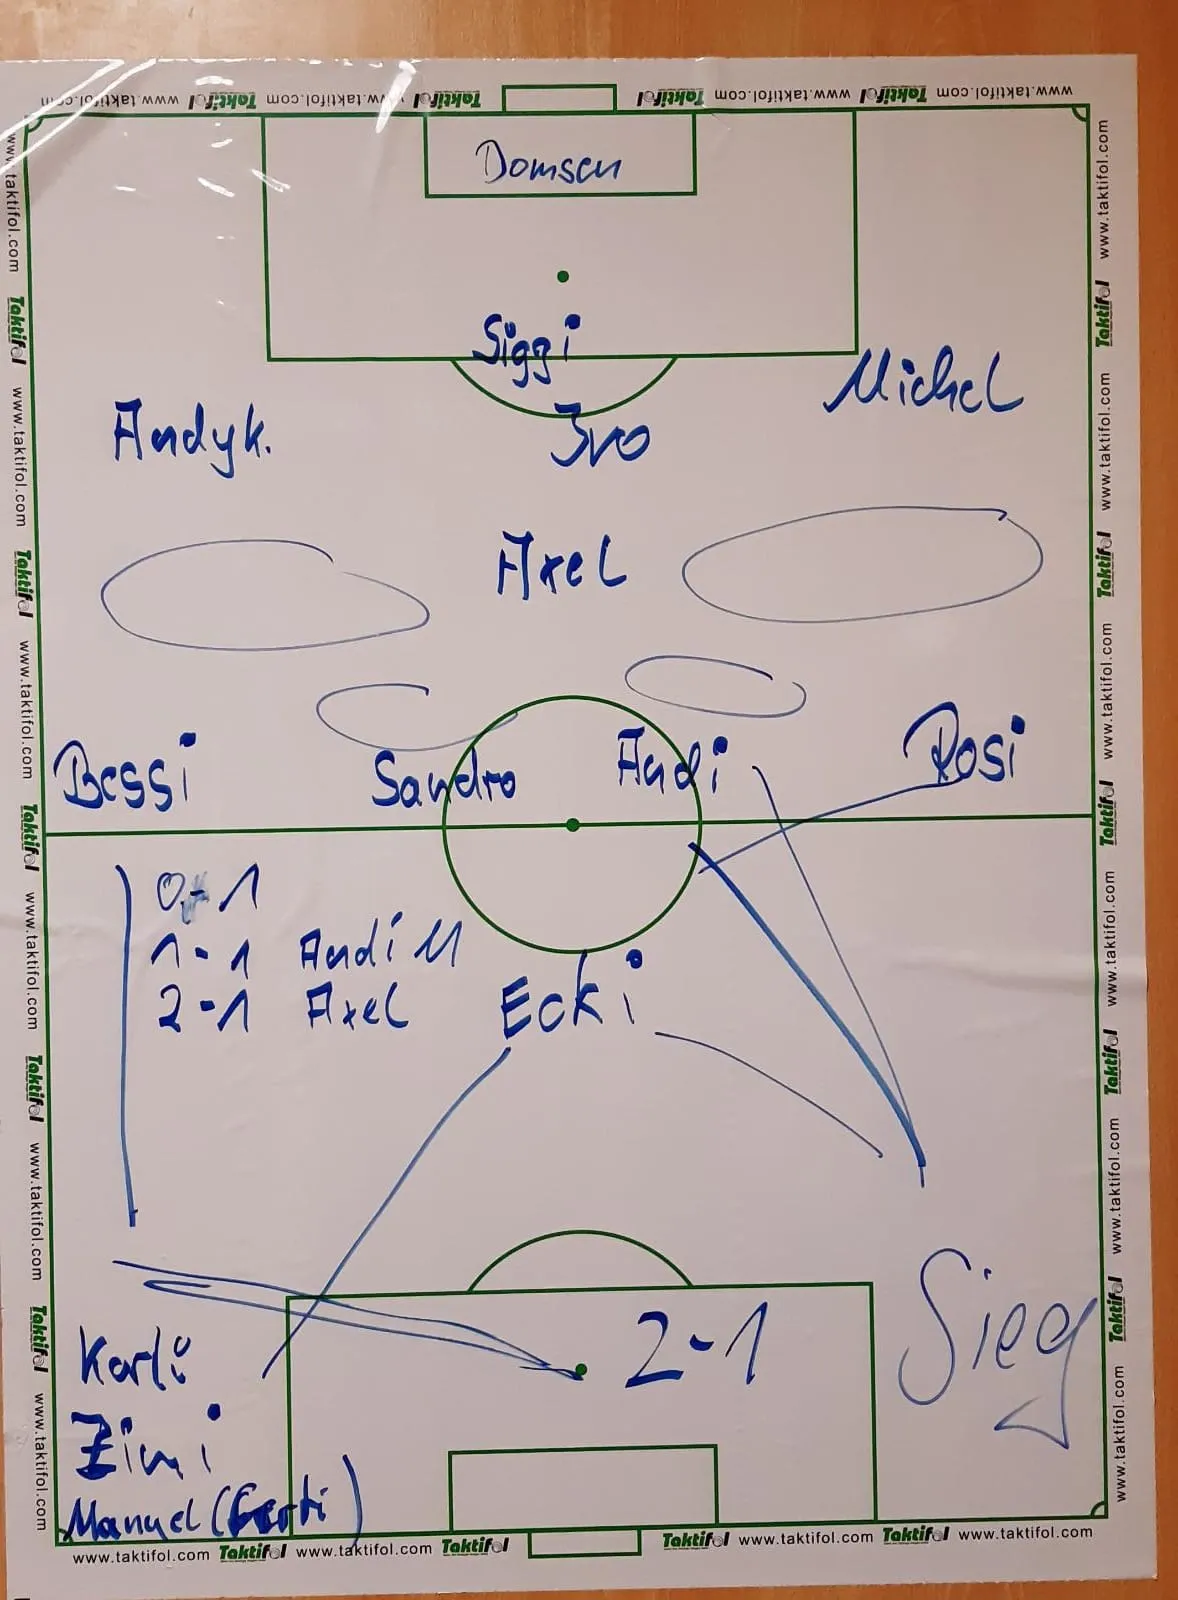 www.taktifol.com Taktifol www.taktifol.com Taktifol www.taktifol.com Taktifol www.taktifol.com Taktifol
Domsen
Siggi
Michel
Andy k.
Ivo
Axel
Bessi Sandro Andi Rosi
0-1
1-1 Andi M
2-1 Axel
Ecki
2-1
Sieg
Karli
Zimi
Manuel (Gerti)
www.taktifol.com Taktifol www.taktifol.com Taktifol Taktifol www.taktifol.com Taktifol www.taktifol.com
www.taktifol.com Taktifol www.taktifol.com Taktifol www.taktifol.com Taktifol www.taktifol.com Taktifol www.taktifol.com Taktifol www.taktifol.com
www.taktifol.com Taktifol www.taktifol.com Taktifol www.taktifol.com Taktifol www.taktifol.com Taktifol www.taktifol.com Taktifol www.taktifol.com